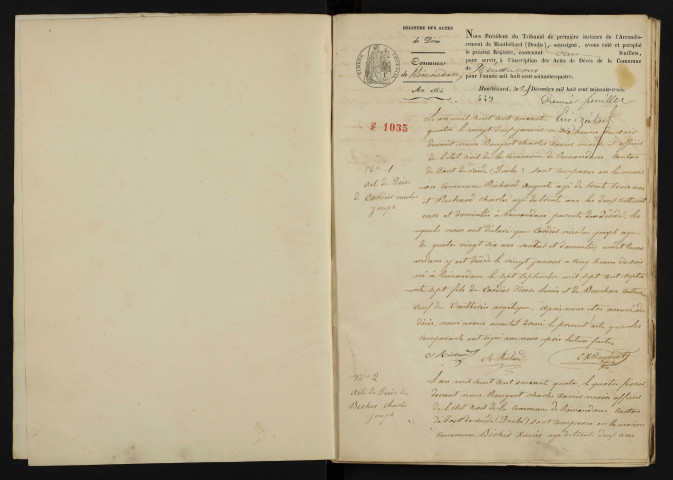 REGISTRE DES ACTES
de Décès
Commune
de Rémondans
An 1864
Nous Président du Tribunal de première instance de l'Arrondis-
sement de Montbéliard (Doubs), soussigné, avons coté et paraphé
le présent Registre, contenant feuillets,
pour servir à l'inscription des Actes de Décès de la Commune
de Rémondans
pour l'année mil huit cent soixante-quatre.
Montbéliard, le Décembre mil huit cent soixante-trois.
449
Premier feuillet
1035
N° 1
Acte de Décès
de Cordier nicolas
joseph
L'an mil huit cent soixante
quatre le vingt deux janvier à dix heures du soir
devant nous Rougeot charles Xavier maire et officier
de l'état civil de la commune de Remondans canton
de Pont de roide (Doubs) sont comparus en la maison
commune Béchard Auguste agé de trente trois ans
et Bechard charles agé de trente ans les deux cultivat
eurs et domiciliés à Rémondans parents du décédé, les
quels nous ont déclaré que Cordier nicolas joseph agé
de quatre vingt six ans rentier et domicilié audit Remo
ndans y est décédé le vingt janvier à cinq heures du soir
né à Rémondans le sept septembre mil sept cent septa
nte sept fils de Cordier Pierre Louis et de
Après nous être assuré du
décès, nous avons aussitôt dressé le présent acte que les
comparants ont signé avec nous après lecture faite.
N° 2
Acte de Décès de
Béchir charles
joseph
L'an mil huit cent soixante quatre, le quatre février
devant nous Rougeot charles Xavier maire officier
de l'état civil de la commune de Remondans canton
de Pont de roide (Doubs) sont comparus en la maison
commune Béchir Xavier agé de trente deux ans